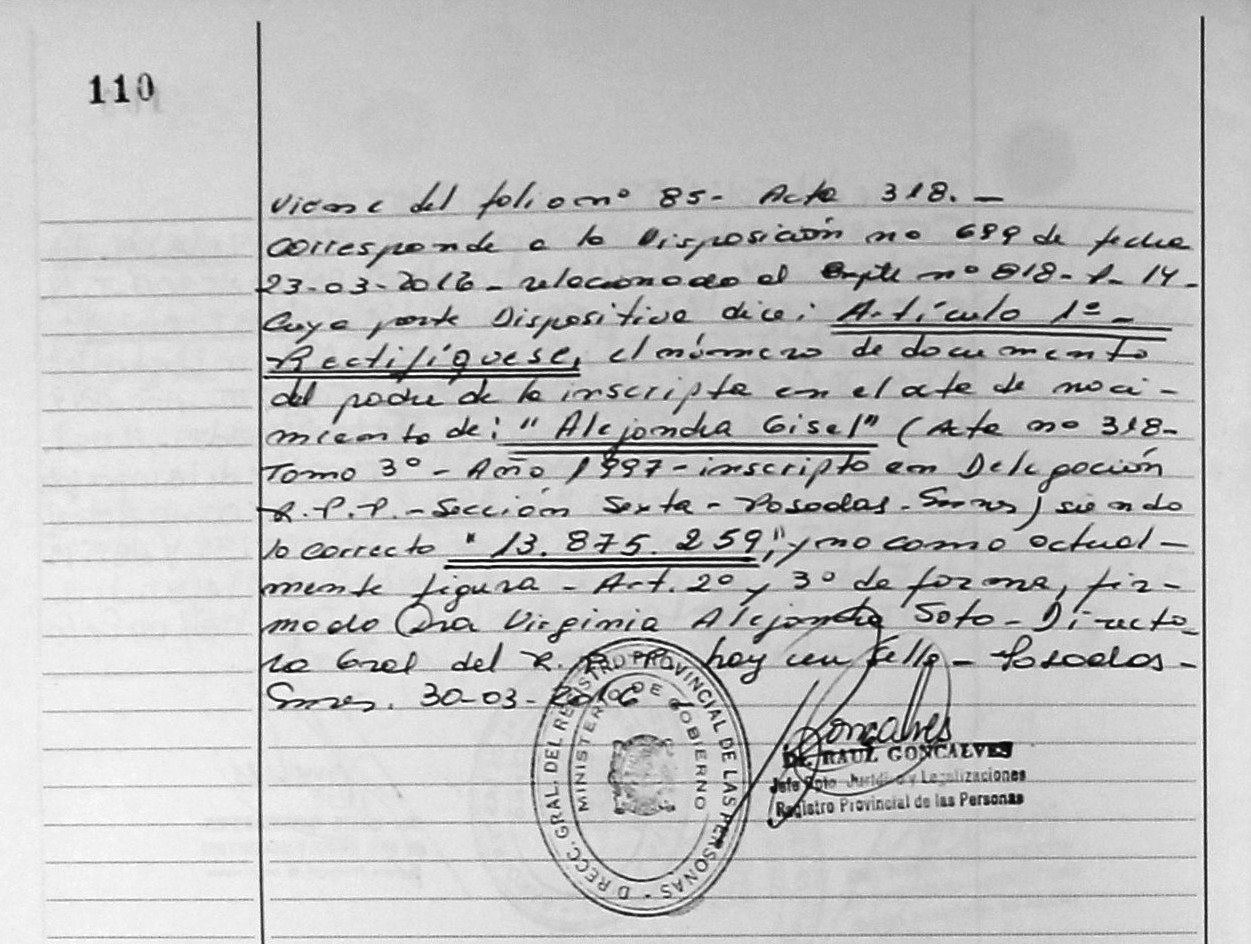 110
Viene del folio nº 85- Acta 318. -
Corresponde a la Disposición no 699 de fecha
23-03-2016 - relacionado al Expte nº 818-P-14-
Cuya parte Dispositiva dice: Artículo 1º -
Rectifíquese, el número de documento
del padre de la inscripta en el acta de naci-
miento de: "Alejandra Gisel" (Acta no 318-
Tomo 3º - Año 1997 - inscripto en Delegación
R.P.P. - Sección Sexta - Posadas - Smnes) siendo
lo correcto "13.875.259", y no como actual-
mente figura - Art. 2º y 3º de forma, fir-
mado Dra Virginia Alejandra Soto - Directo-
ra Gral del R. P. P. hay un sello - Posadas -
Smnes. 30-03-2016
DIRECC. GRAL. DEL REGISTRO PROVINCIAL DE LAS PERSONAS
MINISTERIO DE GOBIERNO
Goncalves
Dr. RAUL GONCALVES
Jefe Dpto Jurídico y Legalizaciones
Registro Provincial de las Personas